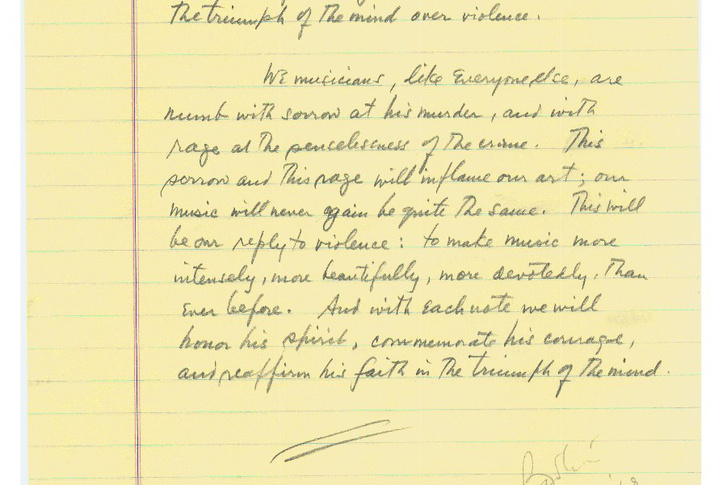 the triumph of the mind over violence.
We musicians, like Everyone else, are
numb with sorrow at his murder, and with
rage at the senselessness of the crime. This
sorrow and this rage will inflame our art; our
music will never again be quite the same. This will
be our reply to violence: to make music more
intensely, more beautifully, more devotedly. Than
Ever before. And with Each note we will
honor his spirit, commemorate his courage,
and reaffirm his faith in the triumph of the mind.